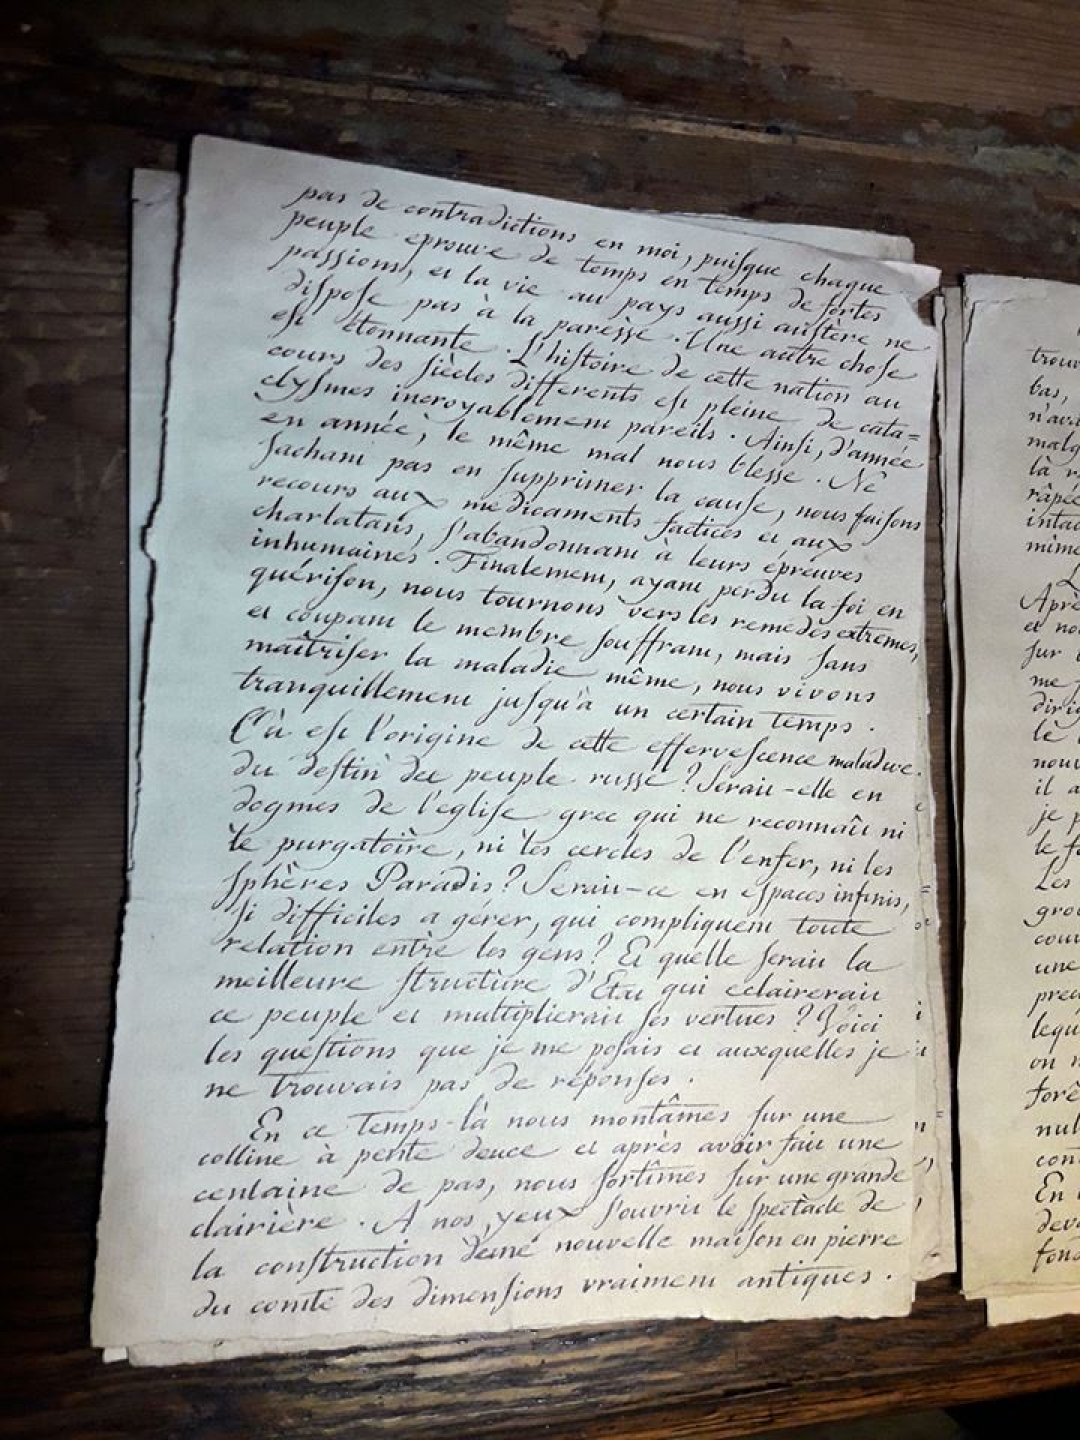 pas de contradictions en moi, puisque chaque
peuple eprouve de temps en temps de fortes
passions, et la vie au pays aussi austère ne
dispose pas à la paresse. Une autre chose
est étonnante. L'histoire de cette nation au
cours des siècles differents est pleine de cata=
clysmes incroyablement pareils. Ainsi, d'année
en année, le même mal nous blesse. Ne
sachant pas en supprimer la cause, nous faisons
recours aux médicaments factices et aux
charlatans, s'abandonnant à leurs épreuves
inhumaines. Finalement, ayant perdu la foi en
guérison, nous tournons vers les remedes extremes,
et coupant le membre souffrant, mais sans
maîtriser la maladie même, nous vivons
tranquillement jusqu'à un certain temps.
Où est l'origine de cette effervescence maladive
du destin dee peuple russe? Serait-elle en
dogmes de l'eglise grec qui ne reconnait ni
le purgatoire, ni les cercles de l'enfer, ni les
sphères Paradis? Serait-ce en espaces infinis,
si difficiles a gérer, qui compliquent toute
relation entre les gens? Et quelle serait la
meilleure structure d'Etat qui eclairerait
ce peuple et multiplierait ses vertues? Voici
les questions que je me posais et auxequelles je
ne trouvais pas de réponses.
En ce temps-là nous montâmes sur une
colline à pente douce et après avoir fait une
centaine de pas, nous sortîmes sur une grande
clairière. A nos yeux s'ouvrit le spectacle de
la construction deune nouvelle maison en pierre
du comte des dimensions vraiment antiques.
trouv
bas,
n'ava
malg
là r
râpée
intac
mime
L
Aprè
et no
sur l
me
dirig
le
nouv
il a
je p
le fo
Les
gro
cour
une
prec
lequ
on n
forê
nul
con
En
deva
fond